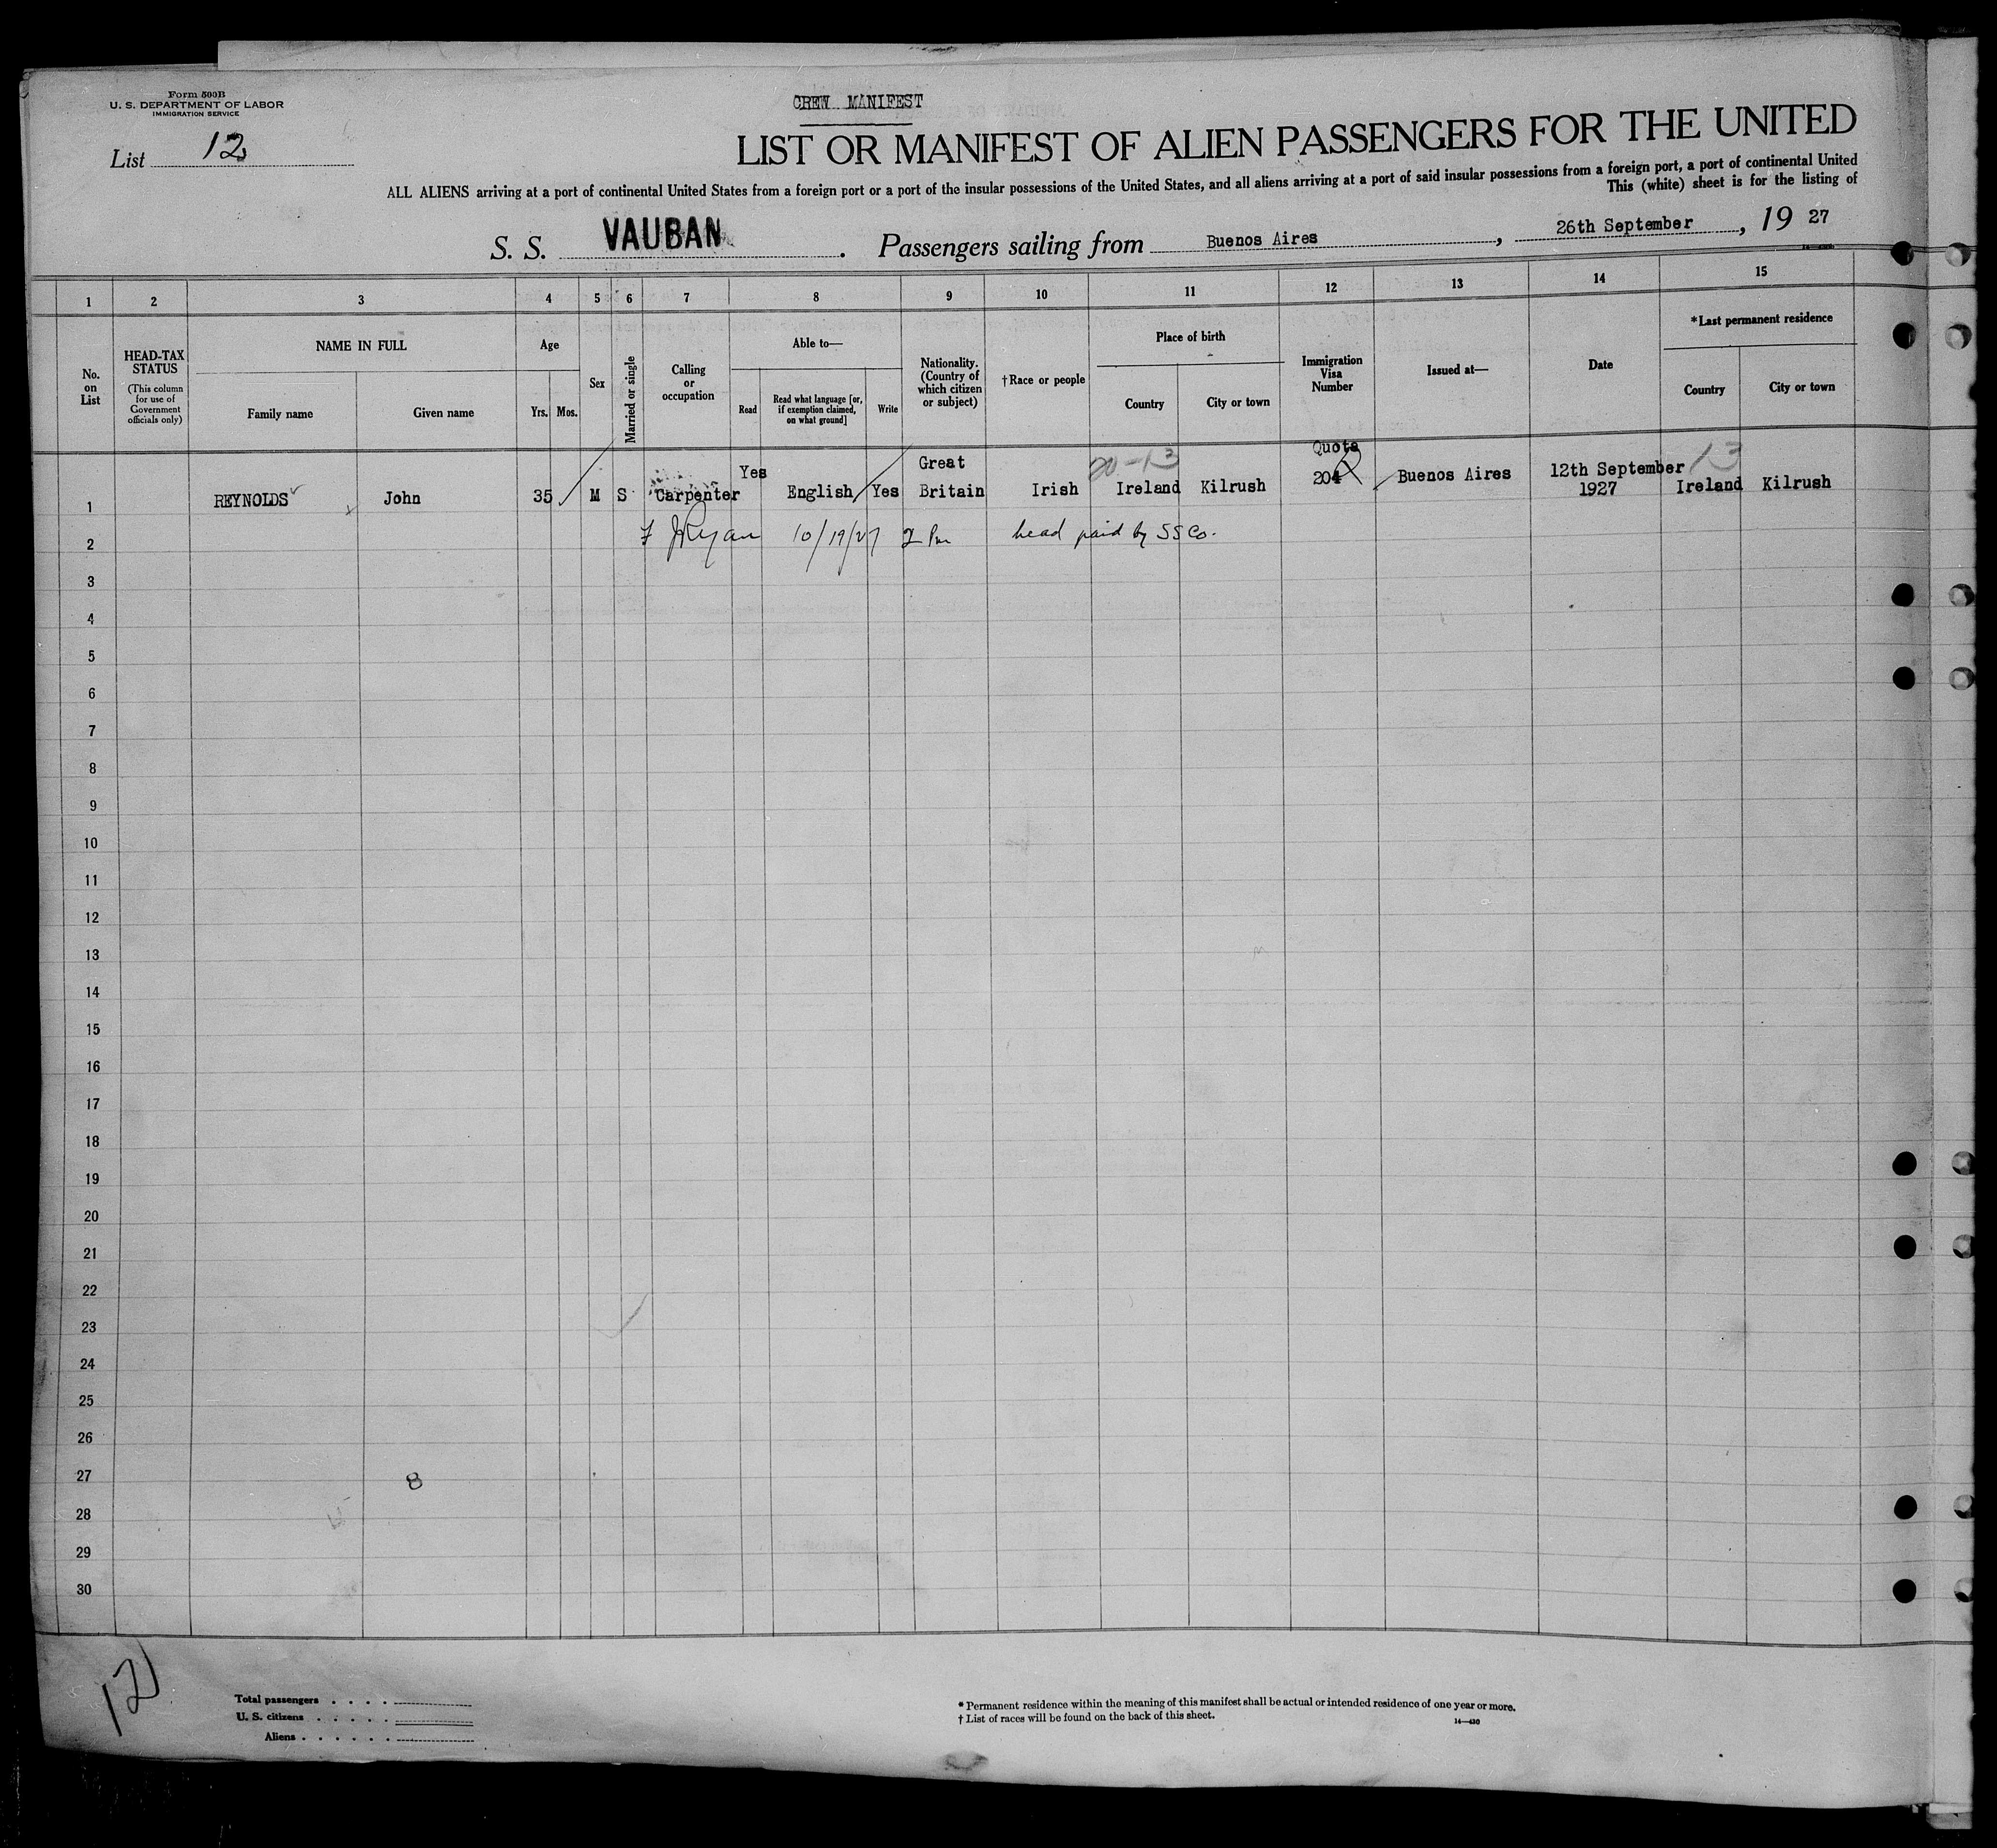 Form 500B
U. S. DEPARTMENT OF LABOR
IMMIGRATION SERVICE
CREW MANIFEST
List 12
LIST OR MANIFEST OF ALIEN PASSENGERS FOR THE UNITED
ALL ALIENS arriving at a port of continental United States from a foreign port or a port of the insular possessions of the United States, and all aliens arriving at a port of said insular possessions from a foreign port, a port of continental United
This (white) sheet is for the listing of
S. S. VAUBAN. Passengers sailing from Buenos Aires, 26th September, 19 27
1 2 3 4 5 6 7 8 9 10 11 12 13 14 15
No. on List
HEAD-TAX STATUS
(This column for use of Government officials only)
NAME IN FULL
Family name
Given name
Age
Yrs. Mos.
Sex
Married or single
Calling or occupation
Able to—
Read
Read what language [or, if exemption claimed, on what ground]
Write
Nationality. (Country of which citizen or subject)
†Race or people
Place of birth
Country
City or town
Immigration Visa Number
Issued at—
Date
*Last permanent residence
Country
City or town
1 REYNOLDS John 35 M S Carpenter Yes English Yes Great Britain Irish 20-13 Ireland Kilrush Quota 204 Buenos Aires 12th September 1927 13 Ireland Kilrush
2 Ryan 10/19/27 2 Pm head paid by SS Co.
3
4
5
6
7
8
9
10
11
12
13
14
15
16
17
18
19
20
21
22
23
24
25
26
27 8
28
29
30
12
Total passengers . . . .
U. S. citizens . . . . .
Aliens . . . . . .
* Permanent residence within the meaning of this manifest shall be actual or intended residence of one year or more.
† List of races will be found on the back of this sheet.
14—430